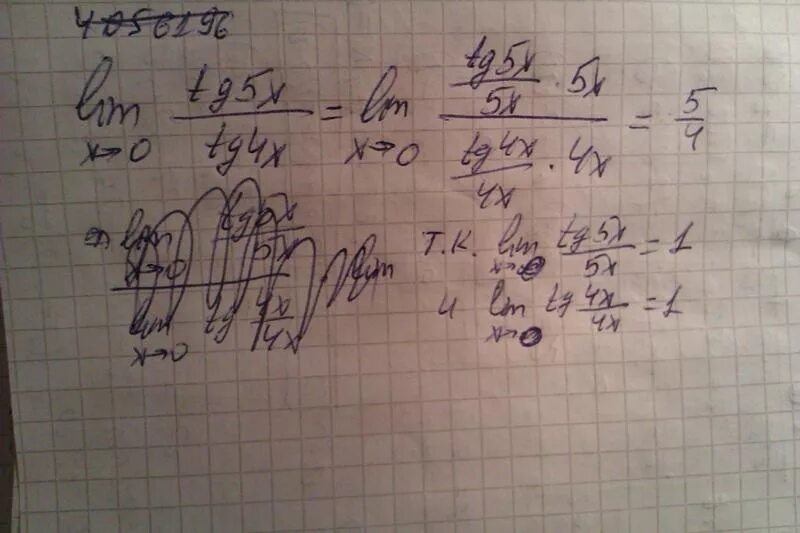 4056196
lim x→0 tg5x/tg4x = lim x→0 (tg5x/5x · 5x)/(tg4x/4x · 4x) = 5/4
т.к. lim x→0 tg5x/5x = 1
и lim x→0 tg 4x/4x = 1